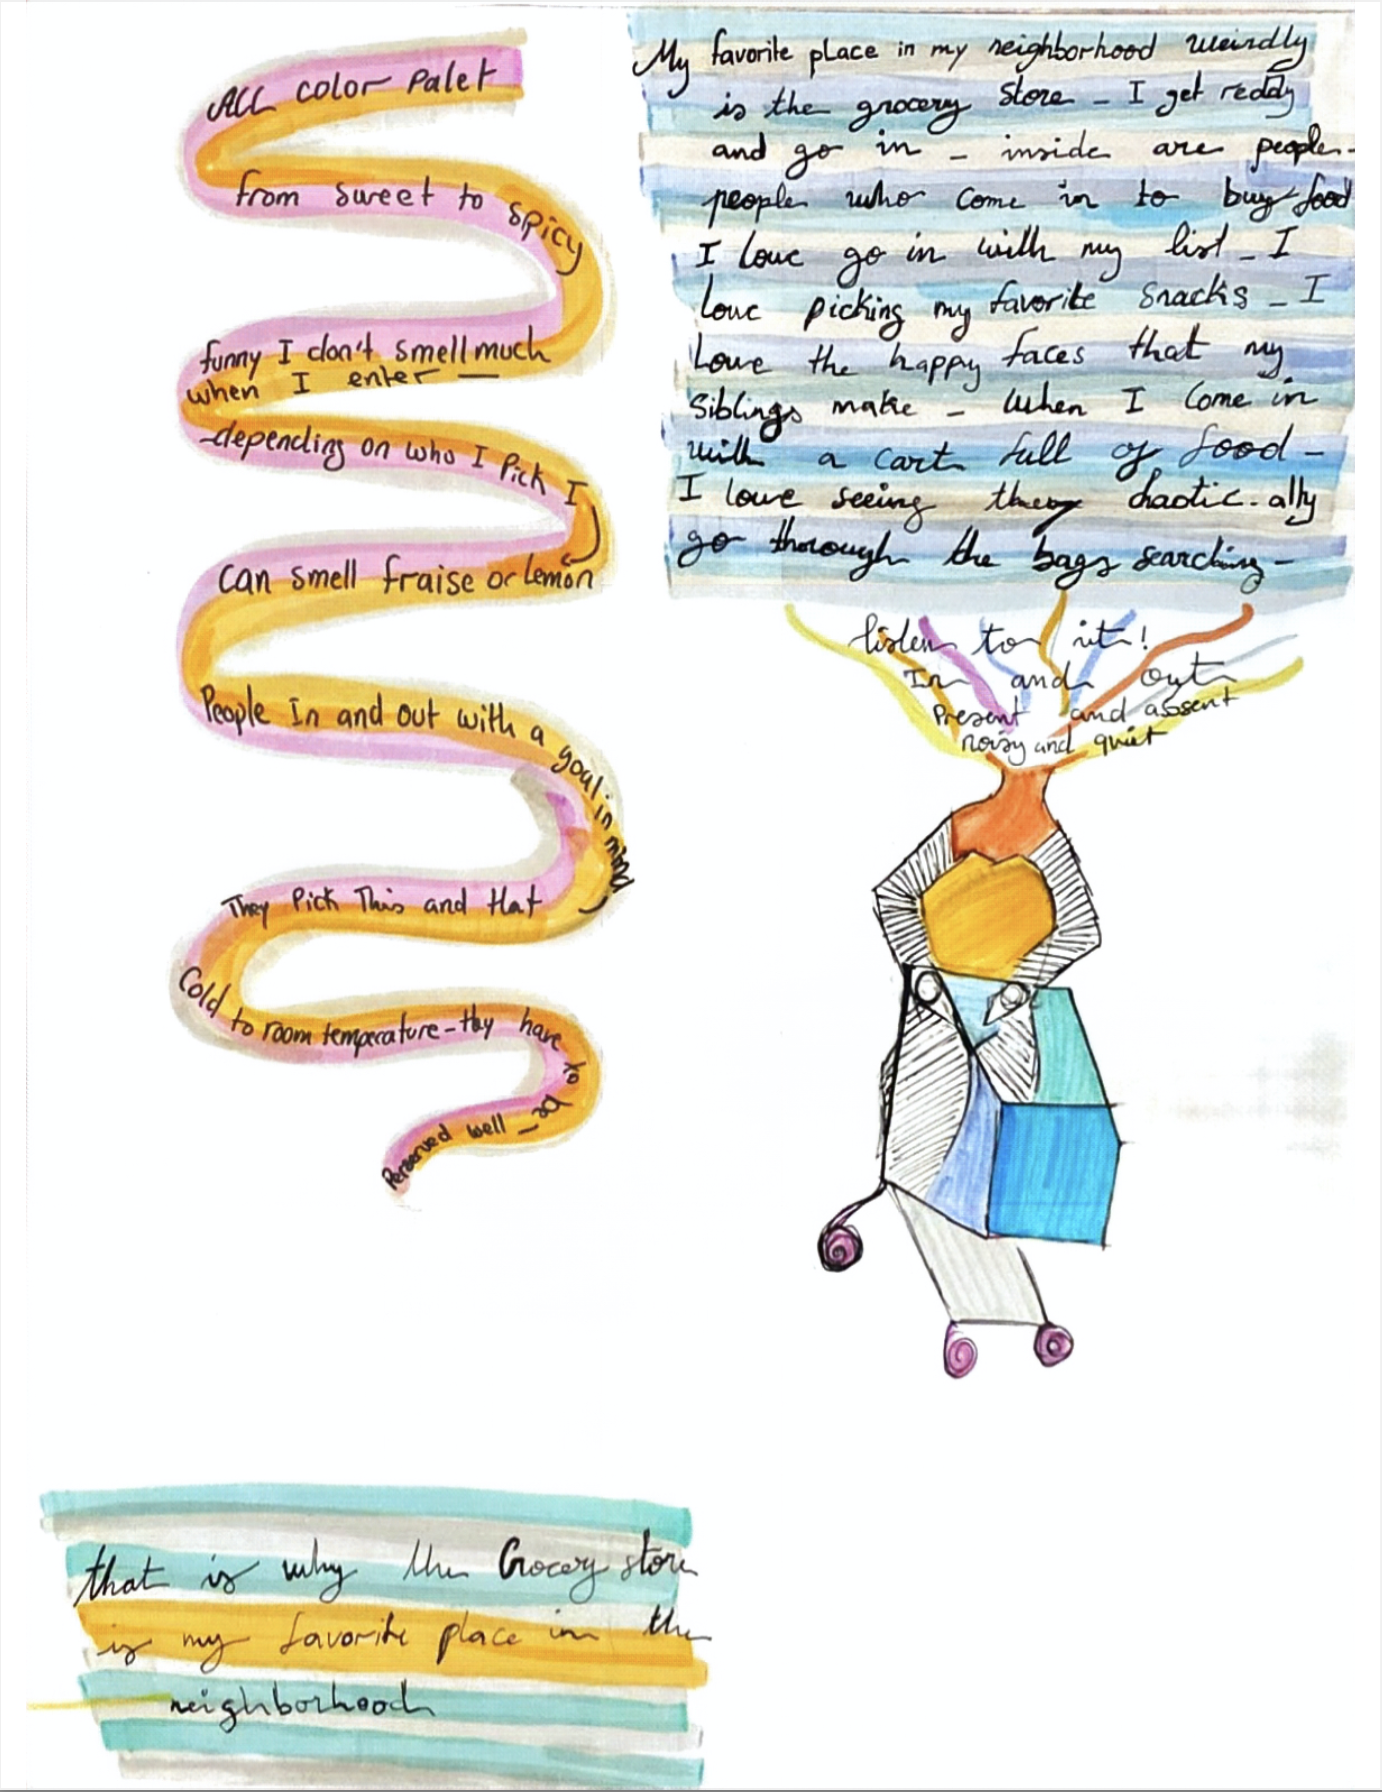 All color palet
from sweet to spicy
funny I don't smell much
when I enter —
-depending on who I pick I
can smell fraise or lemon
People in and out with a goal in mind
They pick this and that
Cold to room temperature - they have to be_
Perserved well
My favorite place in my neighborhood weirdly
is the grocery store - I get reddy
and go in - inside are people -
people who come in to buy food
I love go in with my list - I
love picking my favorite snacks - I
love the happy faces that my
siblings make - when I come in
with a cart full of food -
I love seeing them chaotic-ally
go thorough the bags searching -
listen to it!
In and out
Present and assent
noisy and quiet
that is why the Grocery store
is my favorite place in the
neighborhood